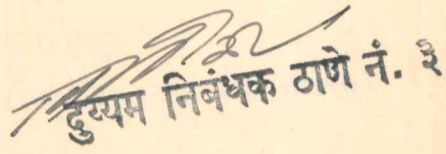 दुय्यम निबंधक ठाणे नं. ३